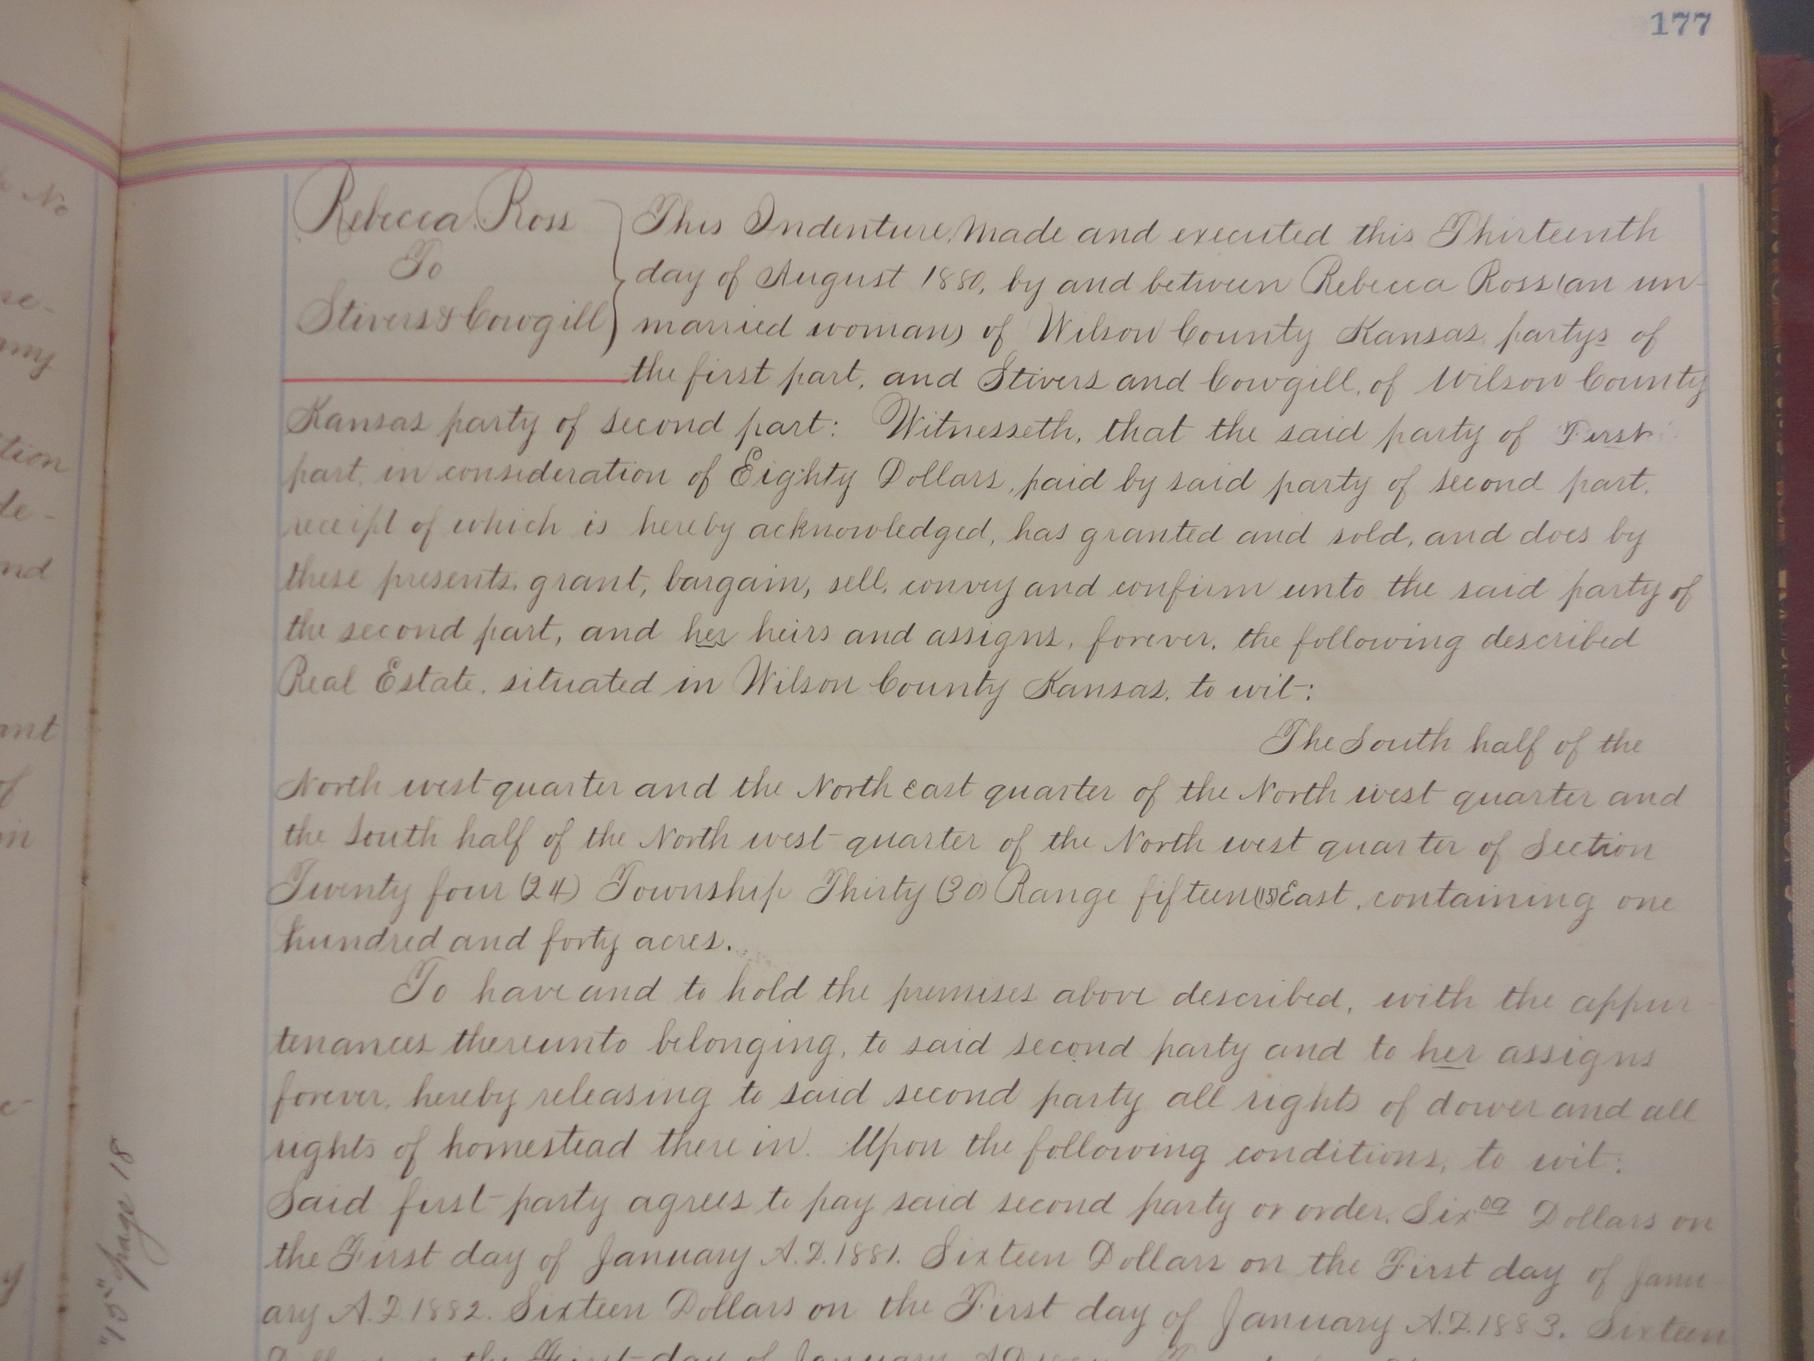 177
Rebecca Ross
To
Stivers & Cowgill
This Indenture, Made and executed this Thirteenth
day of August 1880, by and between Rebecca Ross (an un-
married woman) of Wilson County Kansas, partys of
the first part, and Stivers and Cowgill, of Wilson County
Kansas party of second part: Witnesseth, that the said party of First
part, in consideration of Eighty Dollars, paid by said party of second part,
receipt of which is hereby acknowledged, has granted and sold, and does by
these presents, grant, bargain, sell, convey and confirm unto the said party of
the second part, and her heirs and assigns, forever, the following described
Real Estate, situated in Wilson County Kansas, to wit:
The South half of the
North west quarter and the North east quarter of the North west quarter and
the South half of the North west quarter of the North west quarter of Section
Twenty four (24) Township Thirty (30) Range fifteen (15) East, containing one
hundred and forty acres.
To have and to hold the premises above described, with the appur-
tenances thereunto belonging, to said second party and to her assigns
forever, hereby releasing to said second party all rights of dower and all
rights of homestead there in. Upon the following conditions, to wit:
Said first party agrees to pay said second party or order, Six Dollars on
the First day of January A.D. 1881. Sixteen Dollars on the First day of Janu-
ary A.D. 1882. Sixteen Dollars on the First day of January A.D. 1883. Sixteen
the First day of January A.D.
"15" page 18
No
se-
my
tion
de-
nd
ant
of
in
e-
y